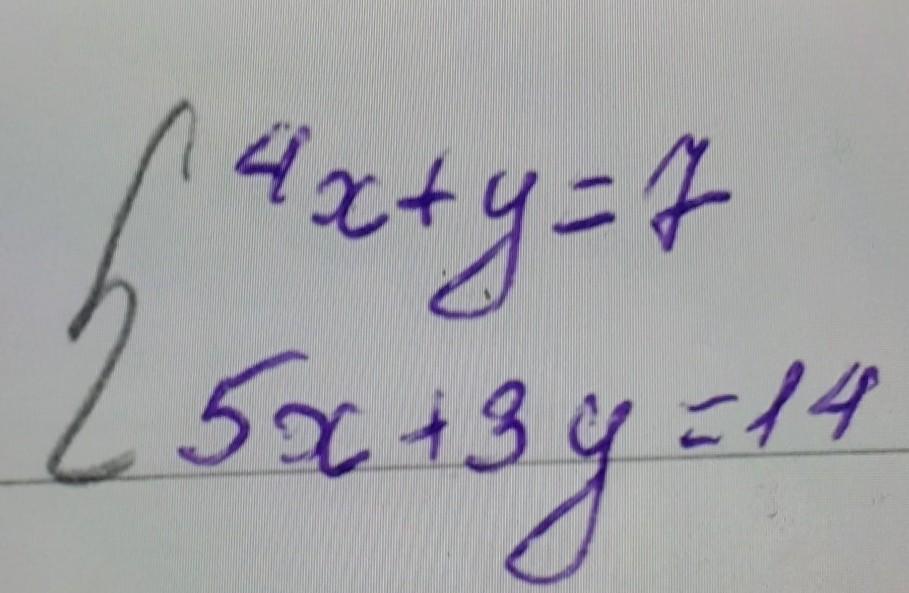 4x+y=7
5x+3y=14